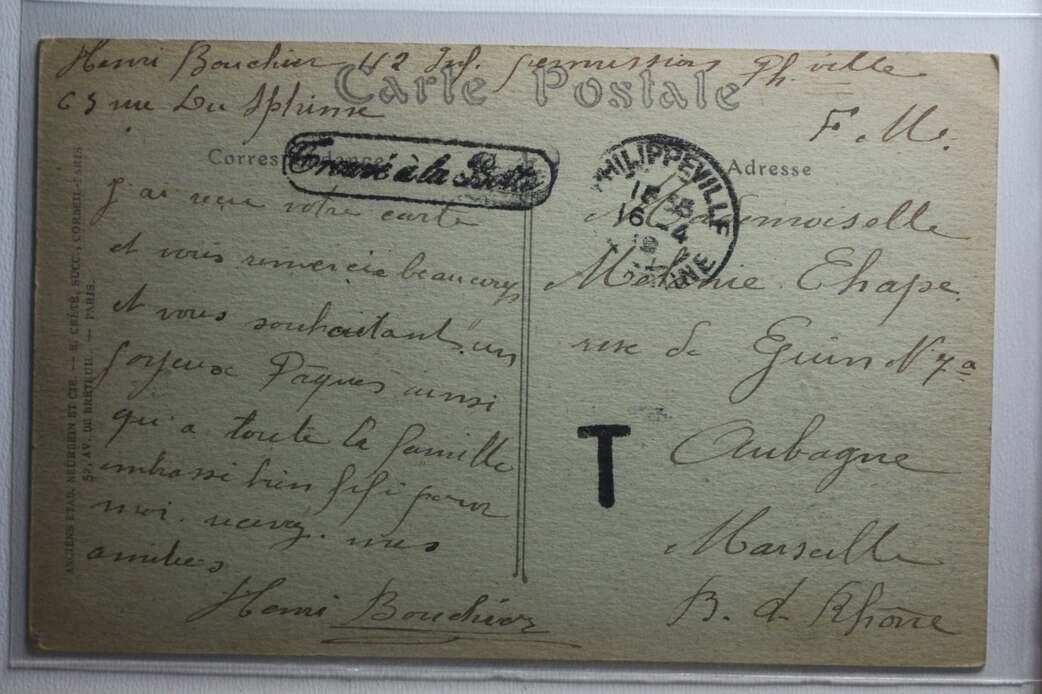 Henri Bouchier 42 Inf. permission Ph.ville
63 rue Du Sphinse
F. M.
Carte Postale
Correspondance
Trouvé à la Boîte
PHILIPPEVILLE
16 - 4
Adresse
J'ai reçu votre carte
et vous remercie beaucoup
et vous souhaitant un
Joyeux Pâques ainsi
qu'a toute la famille
embrassé bien fifi pour
moi. recevez. mes
amitiés
Henri Bouchier
Mademoiselle
Mélanie Chape.
rue de Eguin N 7a
T
Aubagne
Marseille
B. d. Rhône
ANCIENS ETAB. NEURDEIN ET CIE. — E. CRÉTÉ, SUCC., CORBEIL-PARIS
52, AV. DE BRETEUIL. — PARIS.